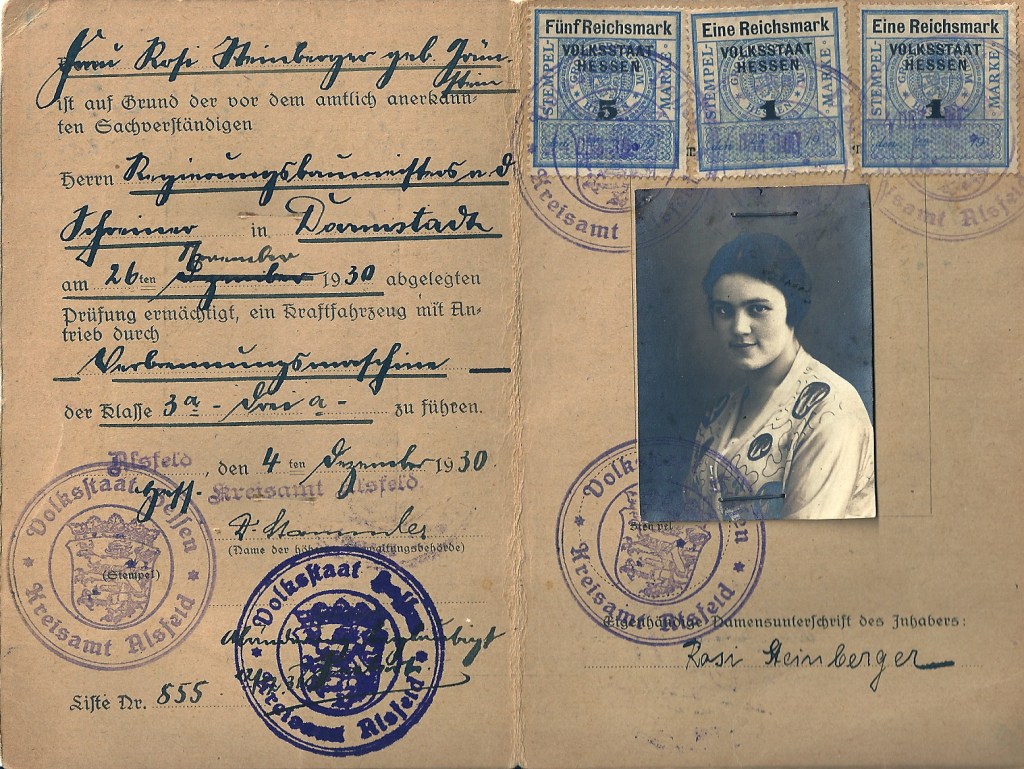 Frau Rosi Steinberger geb. Grün-
stein
ist auf Grund der vor dem amtlich anerkann-
ten Sachverständigen
Herrn Regierungsbaumeisters a. d.
Schreiner in Darmstadt
November
am 26ten Dezember 1930 abgelegten
Prüfung ermächtigt, ein Kraftfahrzeug mit An-
trieb durch
Verbrennungsmaschine
der Klasse 3a - drei a - zu führen.
Alsfeld, den 4ten Dezember 1930.
Hess. Kreisamt Alsfeld.
(Name der höheren Verwaltungsbehörde)
Volksstaat Hessen
Kreisamt Alsfeld
(Stempel)
Volksstaat Hessen
Kreisamt Alsfeld
Liste Nr. 855
Fünf Reichsmark
VOLKSSTAAT
HESSEN
STEMPEL-
MARKE
5
Eine Reichsmark
VOLKSSTAAT
HESSEN
STEMPEL-
MARKE
1
Eine Reichsmark
VOLKSSTAAT
HESSEN
STEMPEL-
MARKE
1
Kreisamt
Kreisamt Alsfeld
Stempel
Volksstaat Hessen
Kreisamt Alsfeld
Eigenhändige Namensunterschrift des Inhabers:
Rosi Steinberger